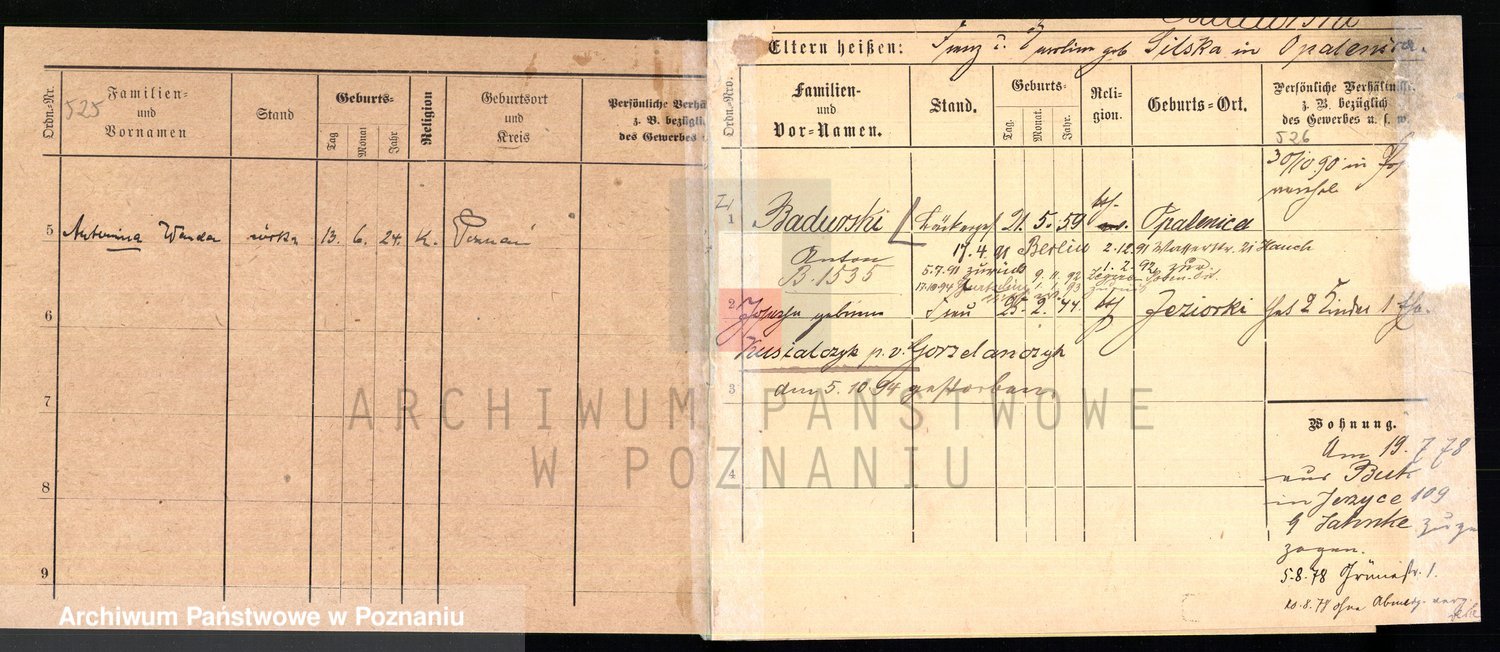 525
Ordn.-Nr.
Familien-
und
Vornamen
Stand
Geburts-
Tag
Monat
Jahr
Religion
Geburtsort
und
Kreis
Persönliche Verhä
z. B. bezüglic
des Gewerbes
5 Antonina Wanda córka 13. 6. 24. K. Poznań
6
7
8
9
Eltern heißen: Franz u. geb Silska in Opalenica.
Ordn.-Nro.
Familien-
und
Vor-Namen.
Stand.
Geburts-
Tag.
Monat.
Jahr.
Reli-
gion.
Geburts-Ort.
Persönliche Verhältnisse,
z. B. bezüglich
des Gewerbes u. s. w.
526
30/10.90 in
1 Badurski 21. 5. 59 kth. Opalenica
Anton 17.4.91 Berlin 2.12.91 Wasserstr. 21 Hauch
B. 1535 5.7.91 zurück 1. 2. 92 zur.
17.10.94 9. 11. 92
1. 1. 93
2 geborene Frau 25. 2. 44. kth Jeziorki hat 2 Kinder 1 Eh.
Kusialczyk p. v. Gorzelanczyk
3 den 5. 10. 94 gestorben.
4
Wohnung.
Am 19. 7 78
aus Buk
in Jezyce 109
b Jahnke zuge
zogen.
5.8.78 Grünestr. 1.
20.8.78 ohne Abmeldg. verz.
ARCHIWUM PAŃSTWOWE
W POZNANIU
Archiwum Państwowe w Poznaniu